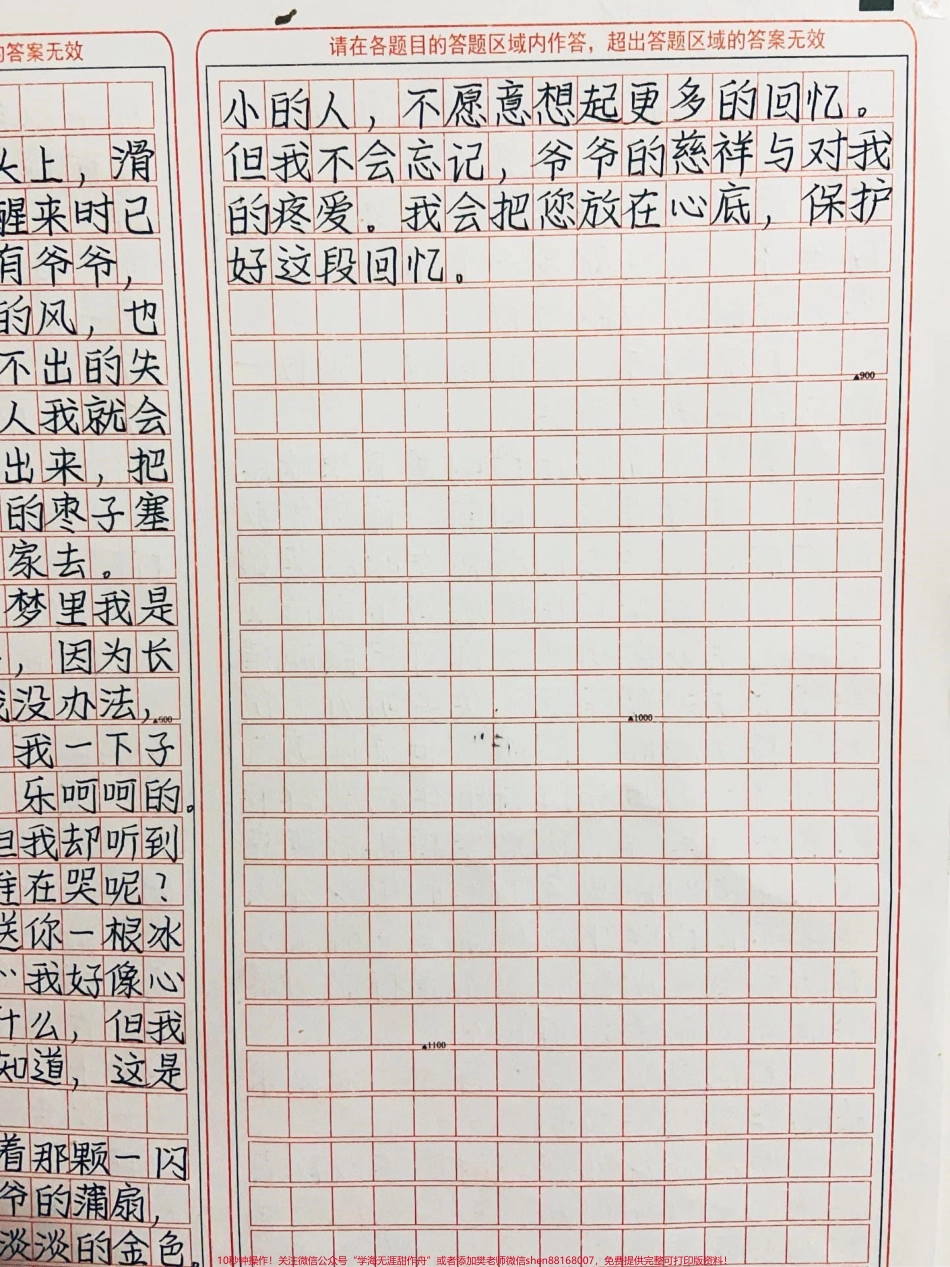 的答案无效
头上，滑
醒来时已
有爷爷，
的风，也
不出的失
人我就会
出来，把
的枣子塞
家去。
梦里我是
，因为长
我没办法，
▲600
我一下子
乐呵呵的。
但我却听到
谁在哭呢？
送你一根冰
我好像心
什么，但我
知道，这是
着那颗一闪
爷的蒲扇，
淡淡的金色。
请在各题目的答题区域内作答，超出答题区域的答案无效
小的人，不愿意想起更多的回忆。
但我不会忘记，爷爷的慈祥与对我
的疼爱。我会把您放在心底，保护
好这段回忆。
▲900
▲1000
▲1100
10秒钟操作！关注微信公众号“学海无涯甜作舟”或者添加樊老师微信shen88168007，免费提供完整可打印版资料！